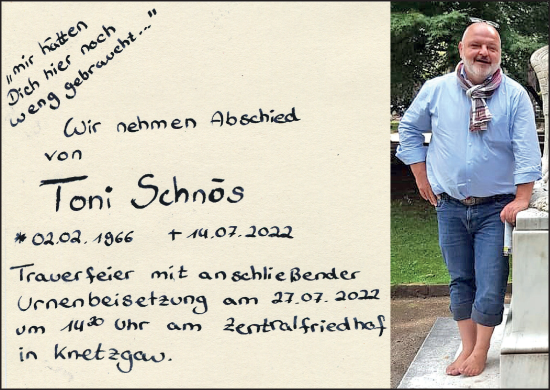 „mir hätten
Dich hier noch
weng gebraucht..."
Wir nehmen Abschied
von
Toni Schnös
* 02.02.1966 + 14.07.2022
Trauerfeier mit anschließender
Urnenbeisetzung am 27.07.2022
um 14³⁰ Uhr am Zentralfriedhof
in Knetzgau.